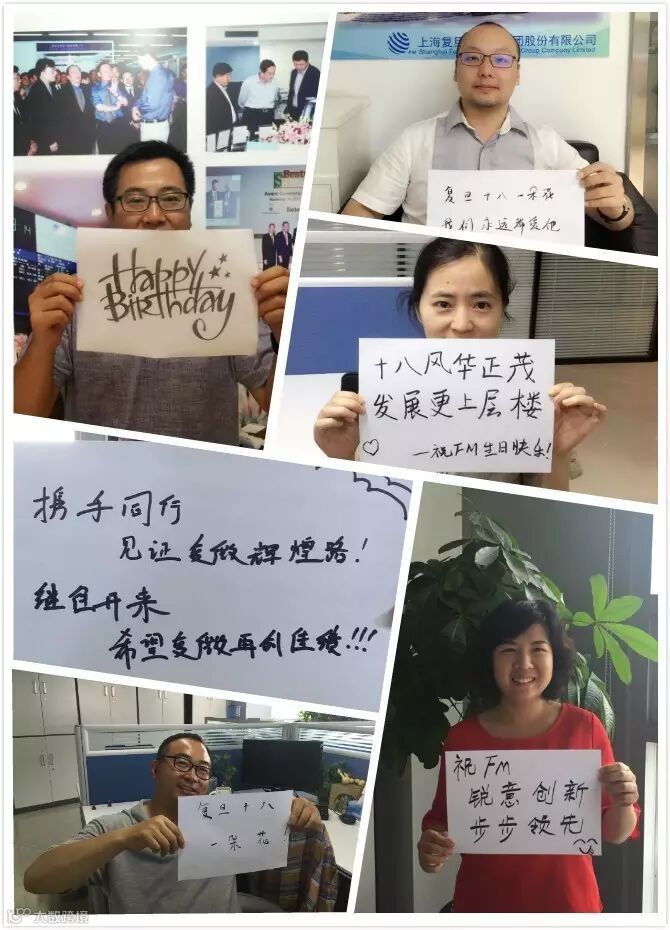 上海复旦 团股份有限公司
Shanghai Group Company Limited
Best
Happy
Birthday
复旦十八一朵花
我们永远都爱他
十八风华正茂
发展更上层楼
—祝FM生日快乐!
携手同行
见证复微辉煌路!
继往开来
希望复微再创佳绩!!!
复旦十八
一朵花!
祝FM
锐意创新
步步领先
大数跨境